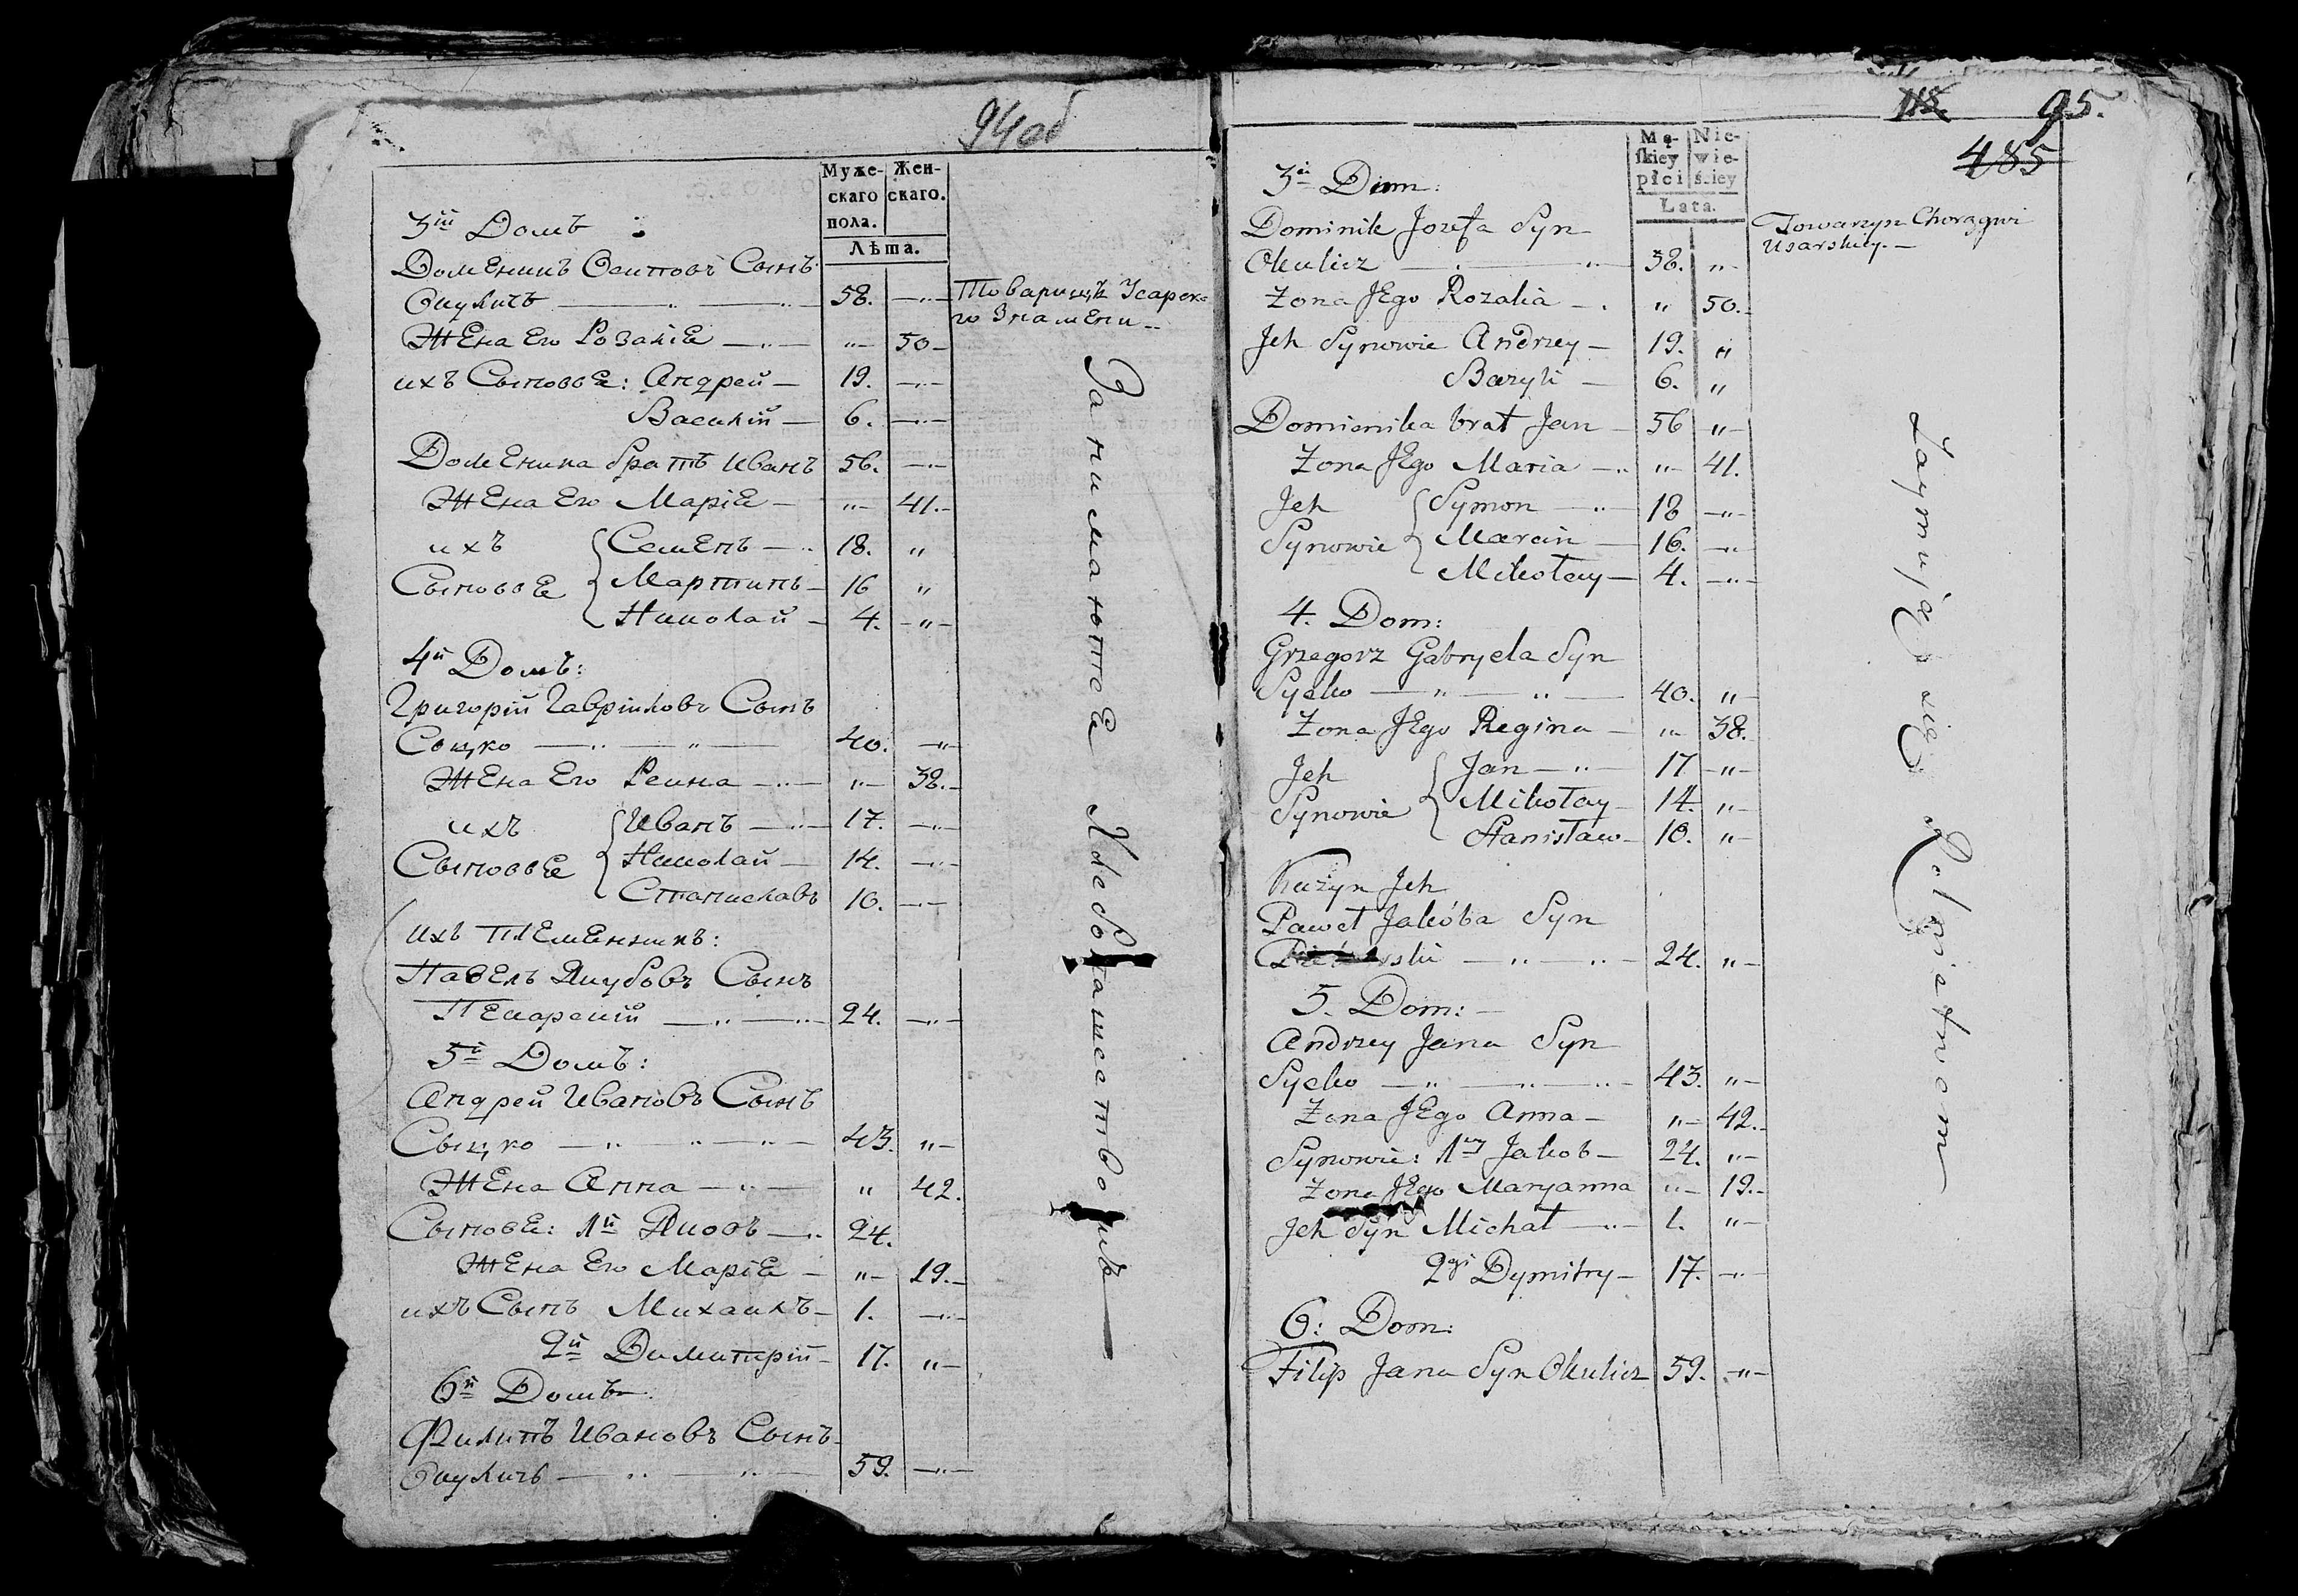 94 об
Муже-
скаго
пола.
Жен-
скаго.
Лѣта.
3ій Домъ:
Доменикъ Осиповъ Сынъ
Окуличъ 58.
Товарищъ Усарска-
го Знамени
Жена Его Розаліе 50
ихъ Сыновье: Андрей 19.
Василій 6.
Доменика братъ Иванъ 56.
Жена Его Маріе 41.
ихъ Семенъ 18.
Сыновье Мартинъ 16
Николай 4.
4й Домъ:
Григорій Гавріиловъ Сынъ
Сыцко 40.
Жена Его Реина 38.
ихъ Иванъ 17.
Сыновье Николай 14.
Станиславъ 10.
ихъ племенникъ:
Павелъ Якубовъ Сынъ
24.
5й Домъ:
Андрей Ивановъ Сынъ
Сыцко 43.
Жена Анна 42.
Сынове: 1й Яковъ 24.
Жена Его Маріе 19.
ихъ Сынъ Михаилъ 1.
2й Димитрій 17.
6й Домъ
Филипъ Ивановъ Сынъ
Окуличъ 59.
Занимаютсе Хлебопашествомъ
95.
485
Mę-
skiey
płci
Nie-
wie-
ściey
Lata.
3ci Dom:
Dominik Jozefa Syn
Okulicz 58.
Towarzysz Chorągwi
Usarskiey.
Żona JEgo Rozalia 50.
Jch Synowie Andrzey 19.
Bazyli 6.
Dominika brat Jan 56
Żona JEgo Maria 41.
Jch Symon 18
Synowie Marcin 16.
Mikołay 4.
4. Dom:
Grzegorz Gabryela Syn
Sycko 40.
Żona JEgo Regina 38.
Jch Jan 17
Synowie Mikołay 14.
Stanisław 10.
Kuzyn Jch
Paweł Jakóba Syn
24.
5. Dom:
Andrzey Jana Syn
Sycko 43.
Żona JEgo Anna 42.
Synowie: 1szy Jakob 24.
Żona JEgo Maryanna 19.
Jch Syn Michał 1.
2gi Dymitry 17.
6: Dom:
Filip Jana Syn Okulicz 59.
Zaymują się Rolnictwem